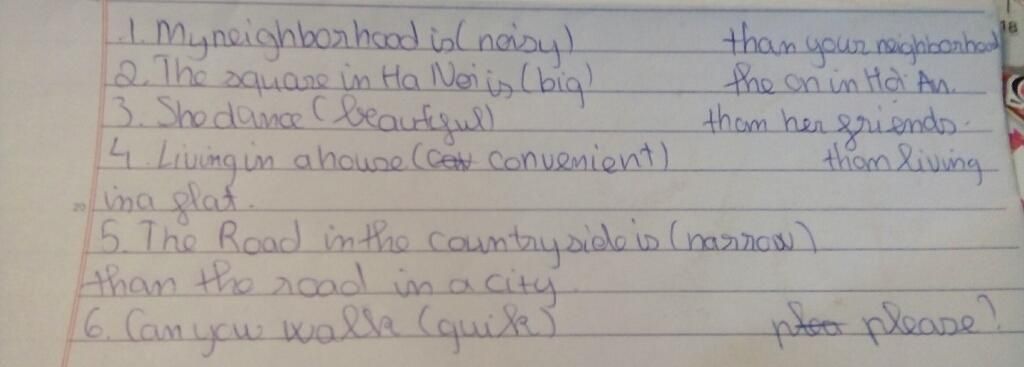 1. My neighborhood is (noisy) than your neighborhood
2. The square in Ha Noi is (big) the on in Hoi An.
3. She dance (beautiful) than her friends.
4. Living in a house (convenient) than living
in a flat.
5. The Road in the countryside is (narrow)
than the road in a city.
6. Can you walk (quik) please?
18
20